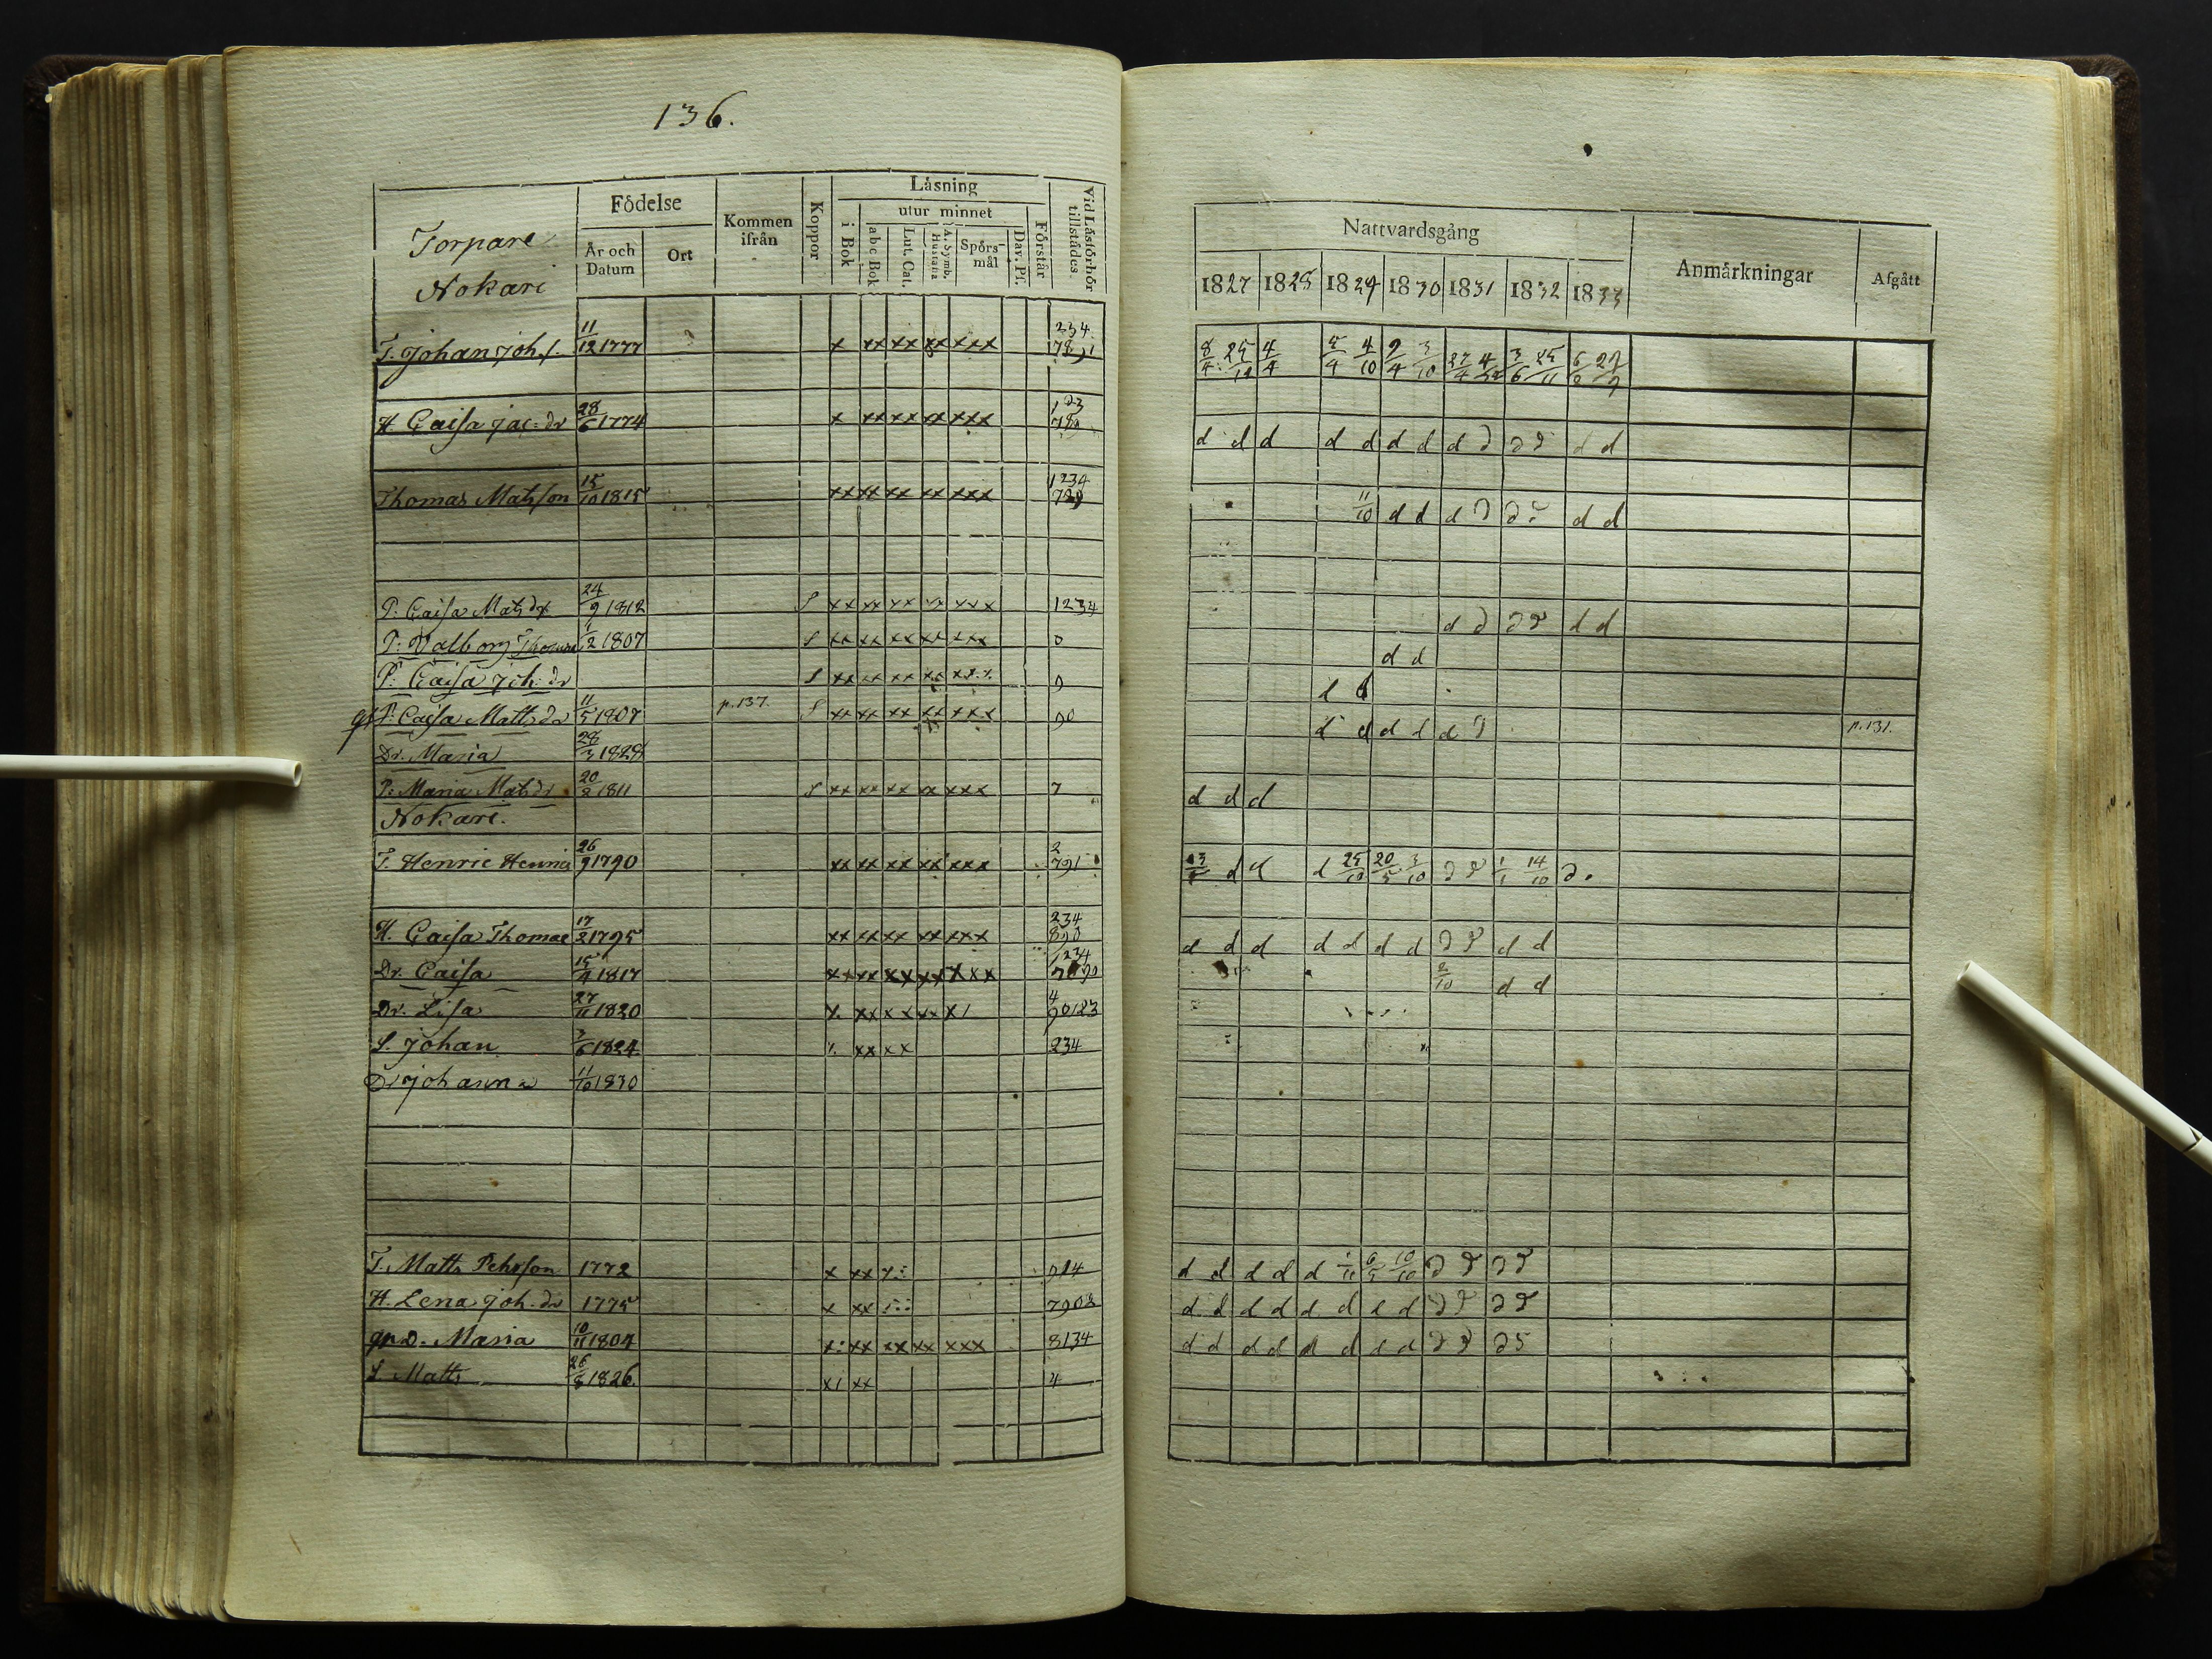 136.
Torpare
Nokari
Födelse
År och Datum
Ort
Kommen ifrån
Koppor
Läsning
i Bok
utur minnet
abc Bok
Lut. Cat.
A. Symb. Hustafla
Spörsmål
Dav. Ps.
Förstår
Vid Läsförhör tillstädes.
T. Johan Joh s. 11/12 1777 x xx xx xx xxx 234
H. Caisa Jac: dr 28/6 1774 x xx xx xx xxx 123
Thomas Matsson 15/10 1815 xx xx xx xx xxx 1234
P: Caisa Mats dr 24/9 1812 S xx xx xx xx xxx 1234
P: Valborg Thomæ 1/2 1807 S xx xx xx xx xxx 0
P: Caisa Joh: dr S xx xx xx xx 9
P: Caisa Matts dr 11/5 1807 p. 137. S xx xx xx xx xxx 90
Dr. Maria 28/3 1828
P: Maria Mats dr 20/2 1811 S xx xx xx xx xxx 7
Nokari.
T. Henric Henrics 26/9 1790 xx xx xx xx xxx 2 791
H. Caisa Thomae 17/2 1795 xx xx xx xx xxx 234 890
Dr. Caisa 15/4 1817 xx xx xx xx xxx 1234
Dr. Lisa 27/11 1820 x xx xx xx x1 4 90123
S. Johan 3/6 1824 xx xx 234
Dr Johanna 11/10 1830
T. Matts Pehrson 1772 x xx 914
H. Lena Joh. dr 1775 x xx 7902
Maria 10/11 1804 x: xx xx xx xxx 8134
S. Matts 26/8 1826. x1 xx 4
Nattvardsgång
Anmärkningar
Afgått
1827 1828 1829 1830 1831 1832 1833
8/4 25/12 4/4 5/4 4/10 9/4 3/10 27/4 3/6 25/11
d d d d d d d d d d d d d
11/10 d d d d d d d
d d d d d d
d d
d d d d d p. 131.
d d d
d d d 25/10 20/5 3/10 d d 1/1 14/10 d
d d d d d d d d d d d
2/10 d d
d d d d d 10/10 d d d d
d d d d d d d d d d d d
d d d d d d d d d d